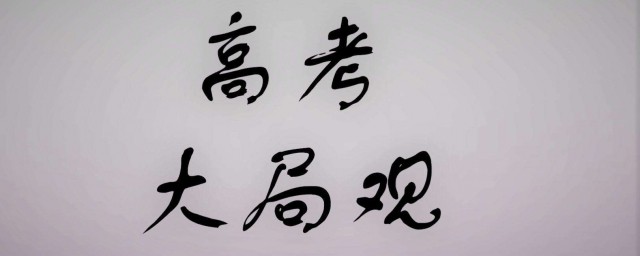 高考
大局观